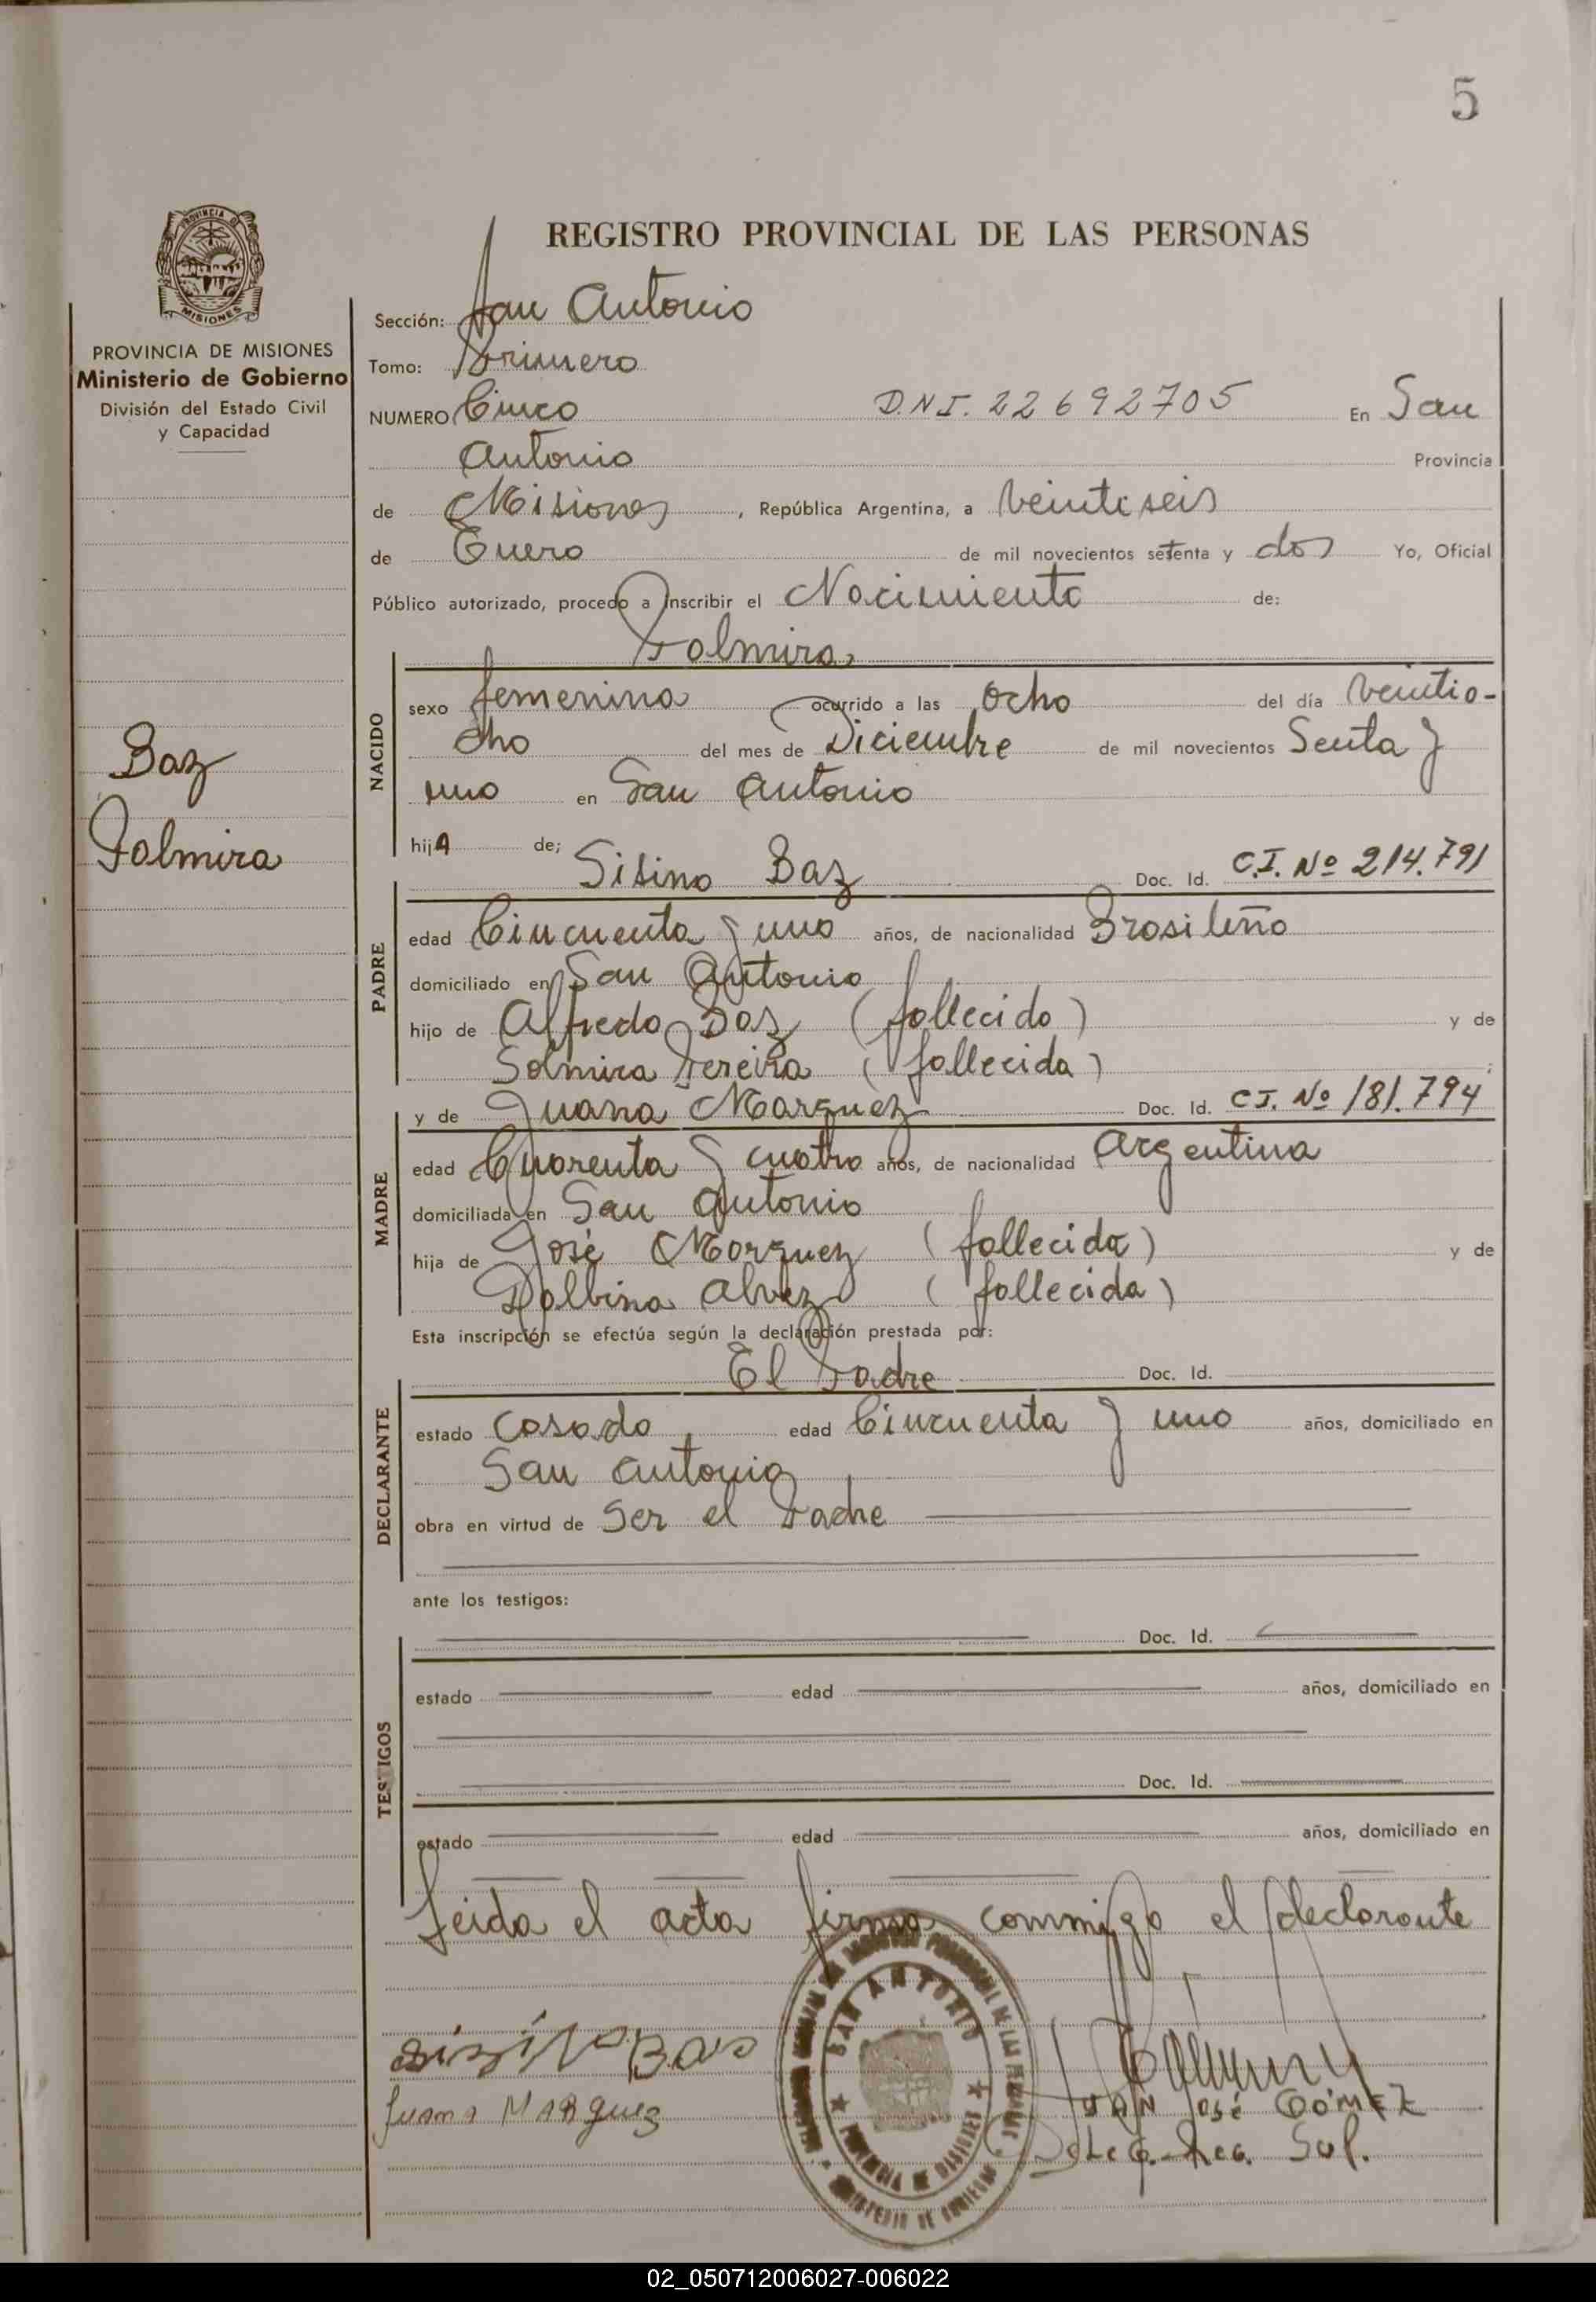 5
REGISTRO PROVINCIAL DE LAS PERSONAS
PROVINCIA DE MISIONES
Ministerio de Gobierno
División del Estado Civil
y Capacidad
Baz
Palmira
Sección: San Antonio
Tomo: Primero
NUMERO Cinco D.N.I. 22692705 En San
Antonio Provincia
de Misiones, República Argentina, a Veintiseis
de Enero de mil novecientos setenta y dos Yo, Oficial
Público autorizado, procedo a inscribir el Nacimiento de:
Palmira
NACIDO
sexo femenina ocurrido a las Ocho del día Veintio-
cho del mes de Diciembre de mil novecientos Senta y
uno en San Antonio
hijA de; Sisino Baz Doc. Id. C.I. Nº 214.791
PADRE
edad Cincuenta y uno años, de nacionalidad Brasileño
domiciliado en San Antonio
hijo de Alfredo Baz (fallecido) y de
Solmira Pereira (fallecida)
y de Juana Marquez Doc. Id. CI. Nº 181.794
MADRE
edad Cuarenta y cuatro años, de nacionalidad Argentina
domiciliada en San Antonio
hija de José Marquez (fallecido) y de
Balbina Alvez (fallecida)
Esta inscripción se efectúa según la declaración prestada por:
El Padre Doc. Id.
DECLARANTE
estado Casado edad Cincuenta y uno años, domiciliado en
San Antonio
obra en virtud de Ser el Padre
ante los testigos:
Doc. Id.
TESTIGOS
estado edad años, domiciliado en
Doc. Id.
estado edad años, domiciliado en
Leida el acta firma conmigo el declarante
SAN ANTONIO
PROVINCIA DE MISIONES
MINISTERIO DE GOBIERNO
Juana MARquez
JUAN José GÓMEZ
02_050712006027-006022